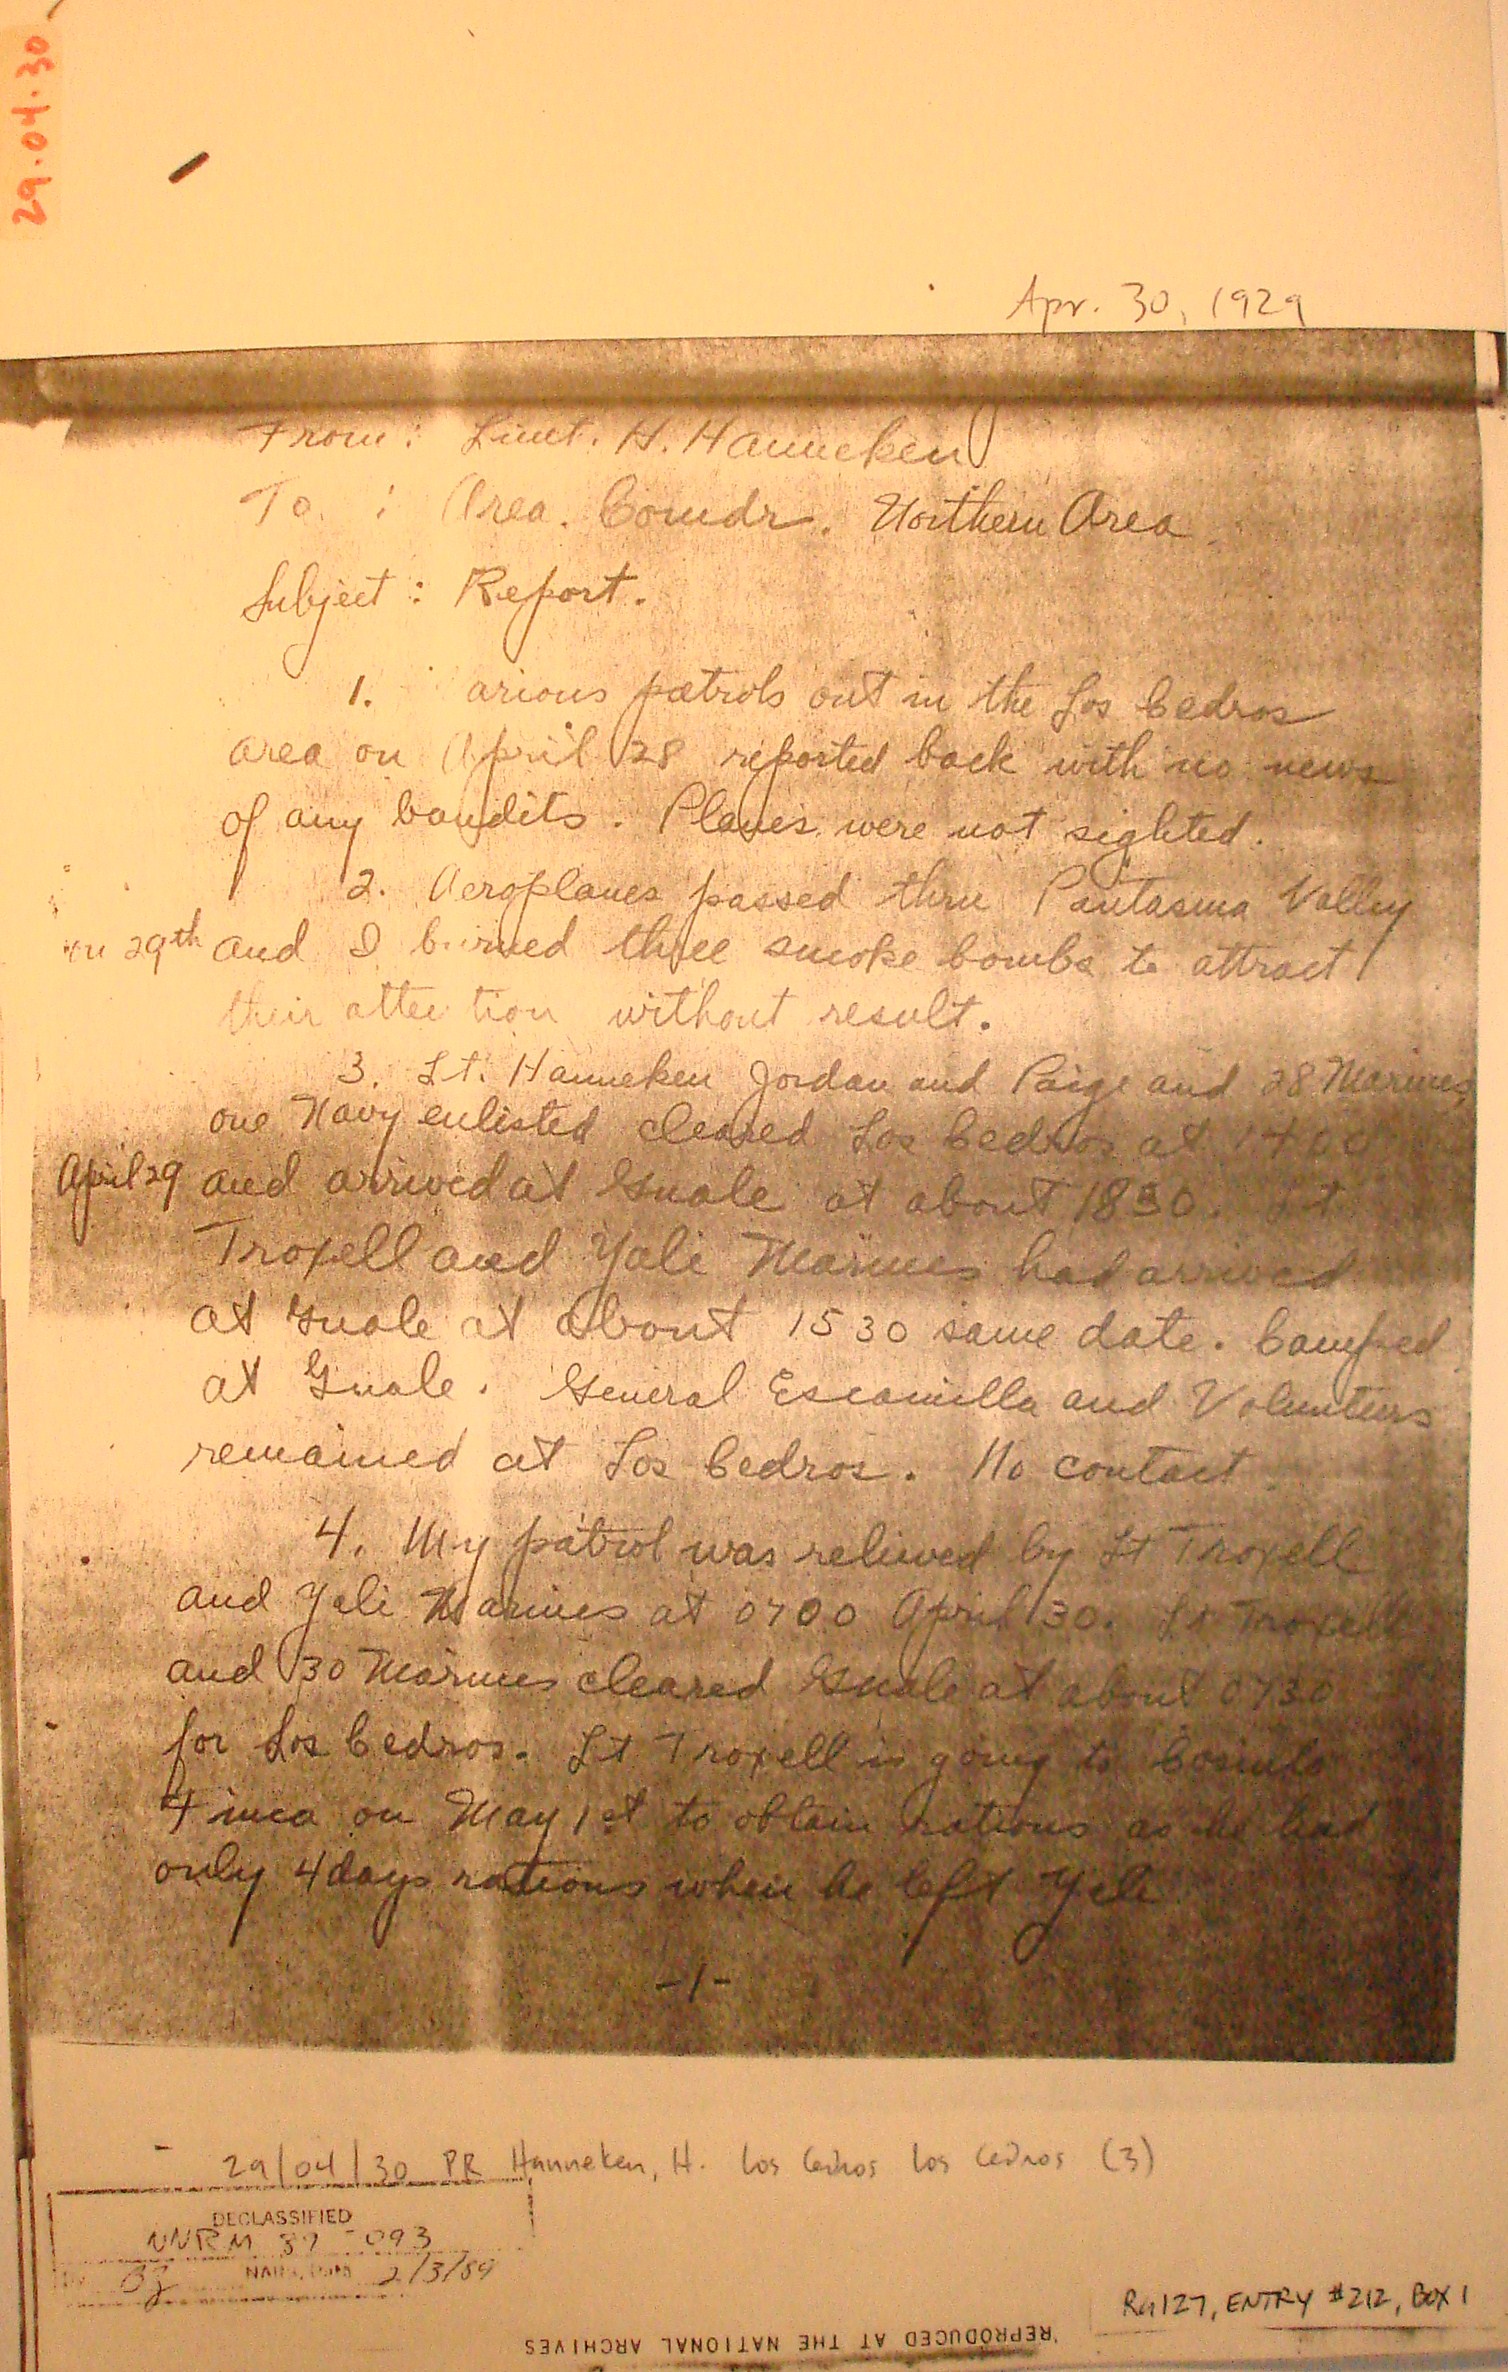 29.04.30
Apr. 30, 1929
From: Lieut. H. Hanneken
To : Area. Comdr. Northern Area
Subject: Report.
1. arious patrols out in the Los Cedros
area on April 28 reported back with no news
of any bandits. Planes were not sighted.
2. Aeroplanes passed thru Pantasma Valley
on 29th and I burned three smoke bombs to attract
their attention without result.
3. Lt. Hanneken Jordan and Paige and 28 Marines,
one Navy enlisted cleared Los Cedros at 1400
April 29 and arrived at Guale at about 1830. Lt
Troxell and Yali Marines had arrived
at Guale at about 1530 same date. Camped
at Guale. General Escamilla and Volunteers
remained at Los Cedros. No contact
4. My patrol was relieved by Lt Troxell
and Yali Marines at 0700 April 30. Lt Troxell
and 30 Marines cleared Guale at about 0730
for Los Cedros. Lt Troxell is going to
Finca on May 1st to obtain rations as he had
only 4 days rations when he left Yali
-1-
29/04/30 PR Hanneken, H. Los Cedros Los Cedros (3)
DECLASSIFIED
NNRM 89-093
NARS, 2/3/89
RG127, ENTRY #212, BOX 1
REPRODUCED AT THE NATIONAL ARCHIVES